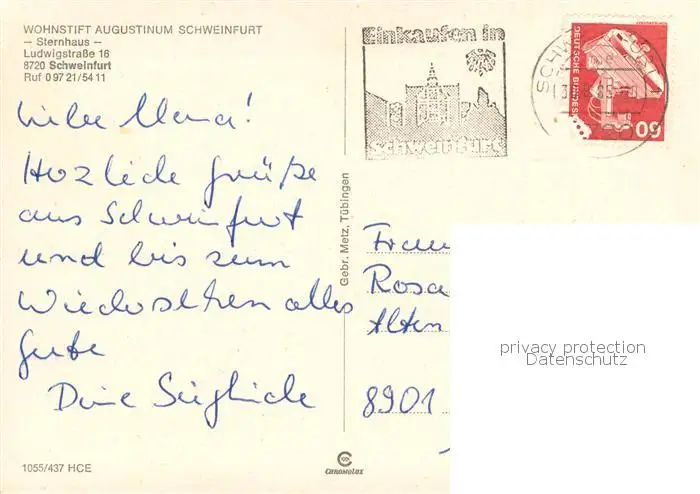 WOHNSTIFT AUGUSTINUM SCHWEINFURT
– Sternhaus –
Ludwigstraße 16
8720 Schweinfurt
Ruf 0 97 21/54 11
Liebe Mama!
Herzliche Grüße
aus Schweinfurt
und bis zum
Wiedersehen alles
Gute
Deine Sieglinde
1055/437 HCE
Gebr. Metz, Tübingen
CHROMOLUX
Einkaufen in
Schweinfurt
DEUTSCHE BUNDES
60
Frau
Rosa
Alten
8901
privacy protection
Datenschutz